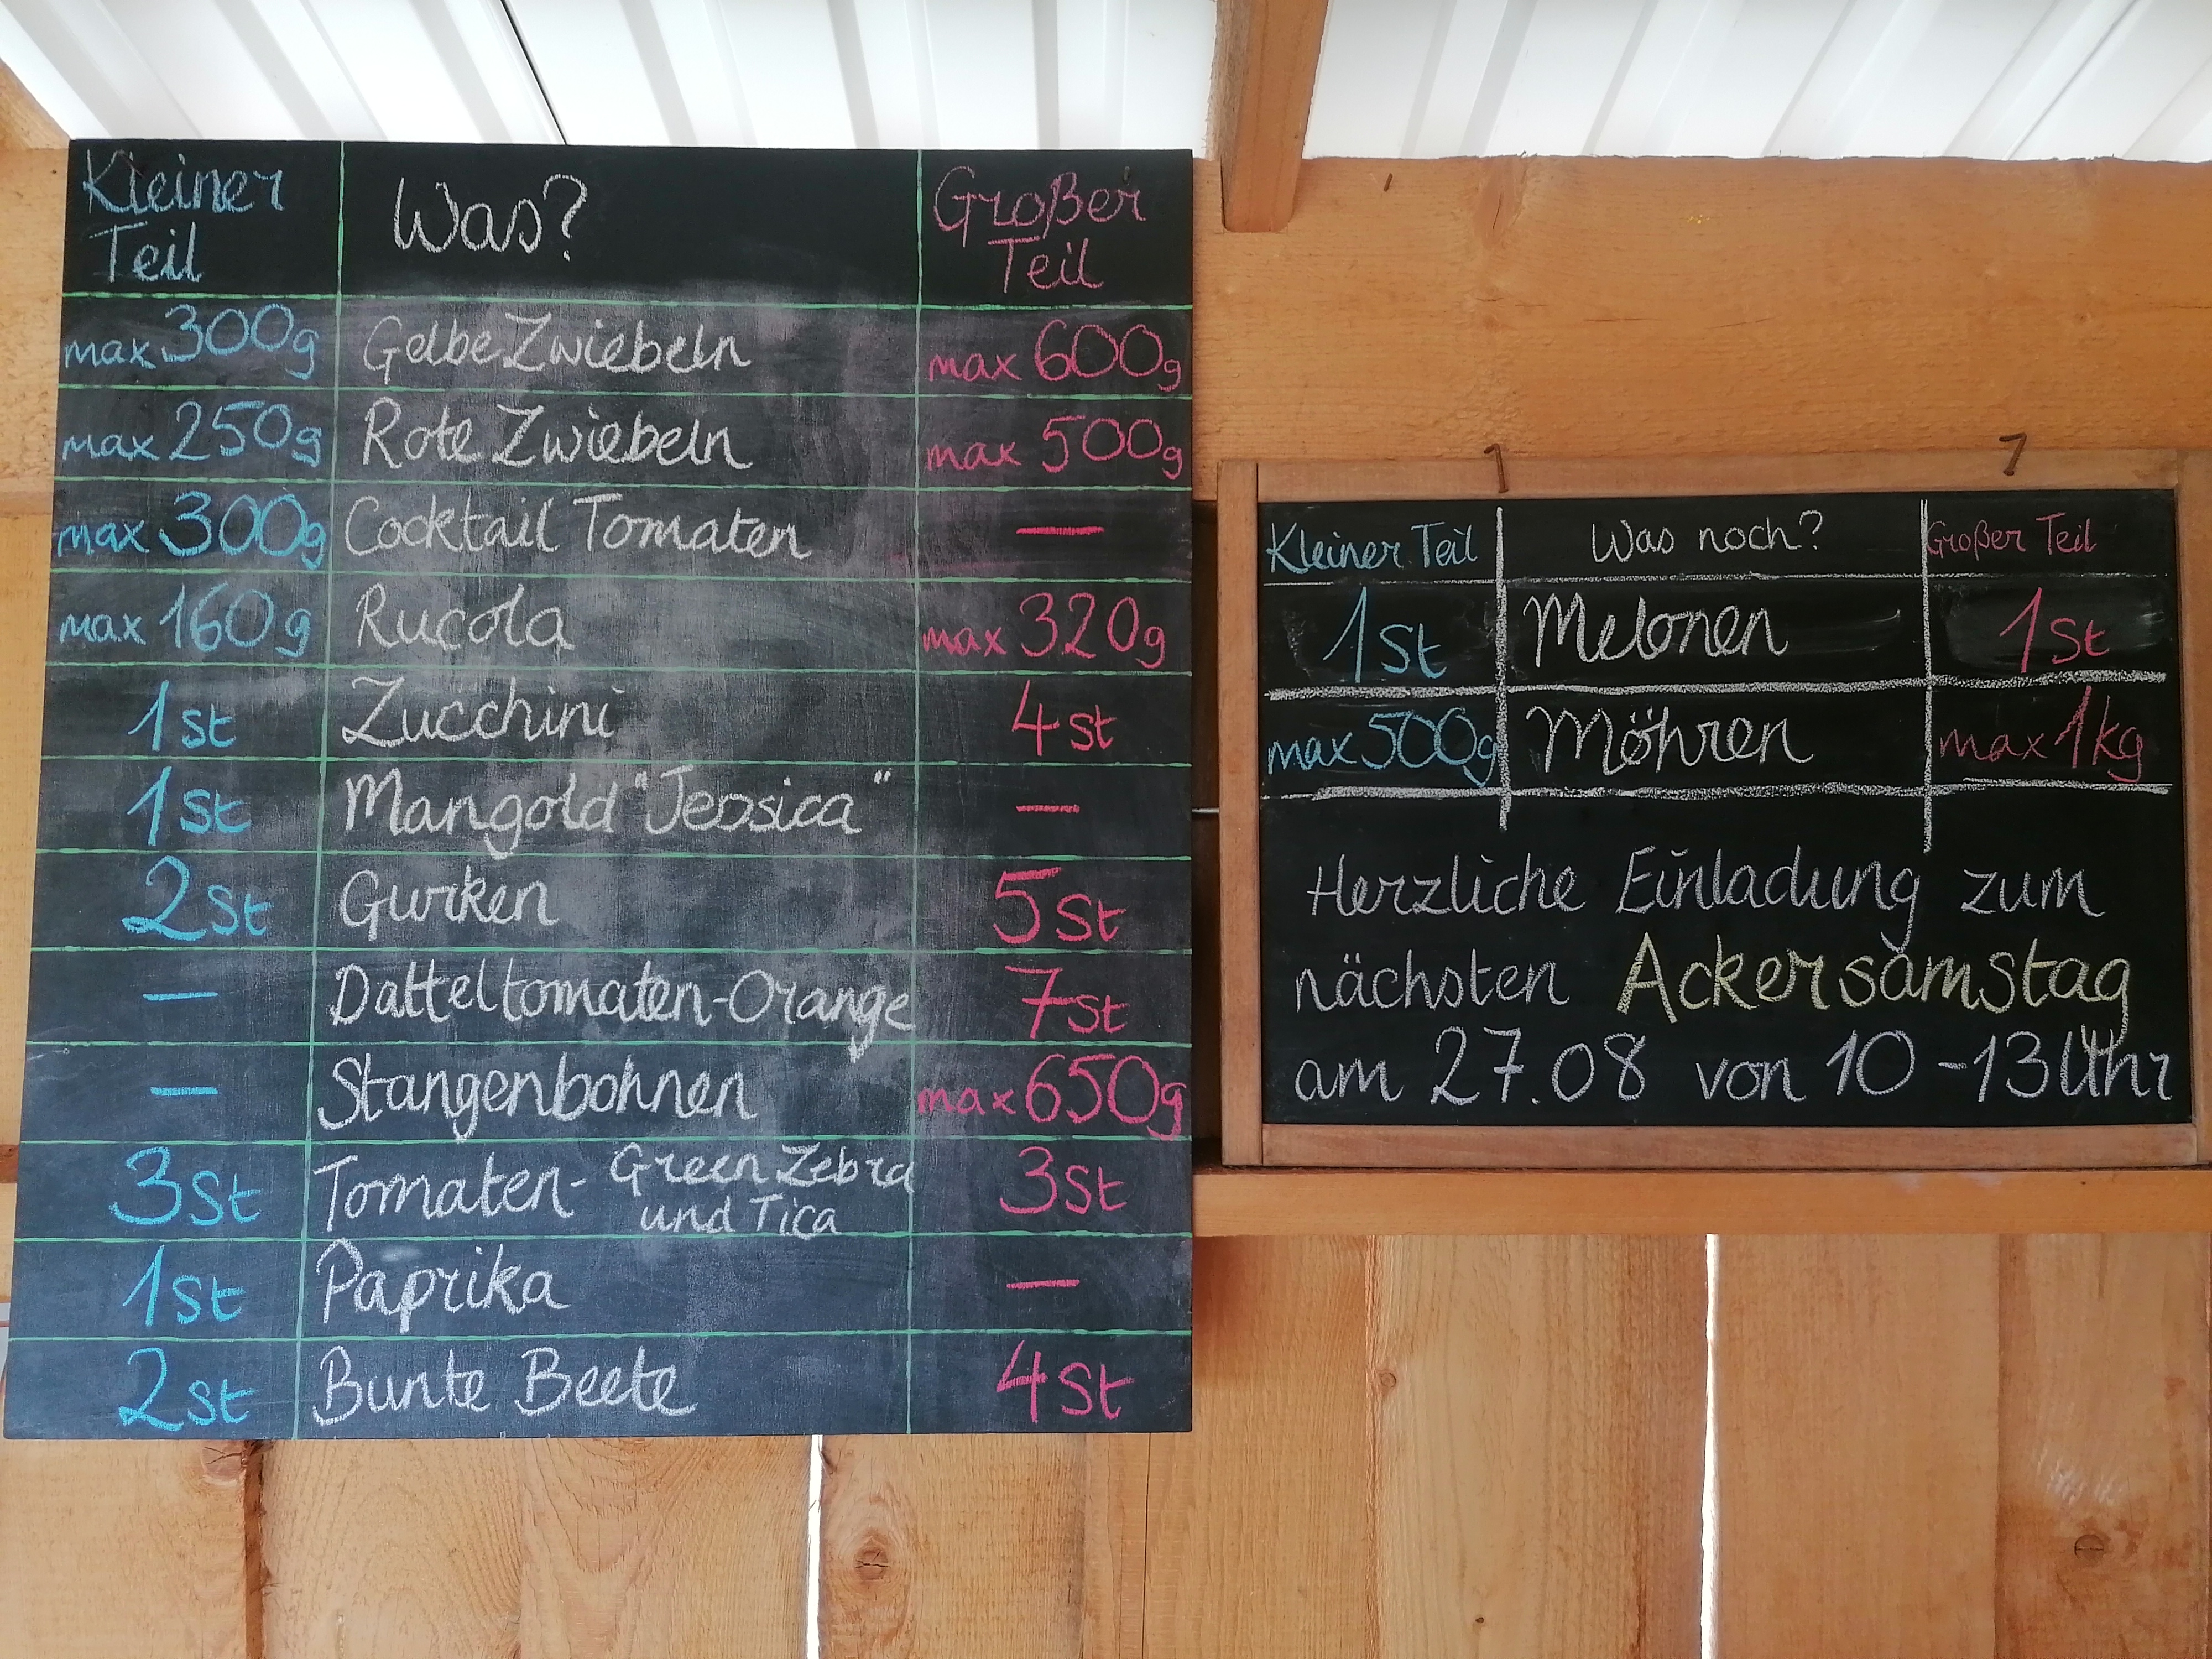 Kleiner Teil Was? Großer Teil
max 300g Gelbe Zwiebeln max 600g
max 250g Rote Zwiebeln max 500g
max 300g Cocktail Tomaten —
max 160g Rucola max 320g
1 St Zucchini 4 St
1 St Mangold "Jessica" —
2 St Gurken 5 St
— Datteltomaten-Orange 7 St
— Stangenbohnen max 650g
3 St Tomaten- Green Zebra und Tica 3 St
1 St Paprika —
2 St Bunte Beete 4 St
Kleiner Teil Was noch? Großer Teil
1 St Melonen 1 St
max 500g Möhren max 1kg
Herzliche Einladung zum
nächsten Ackersamstag
am 27.08 von 10-13 Uhr